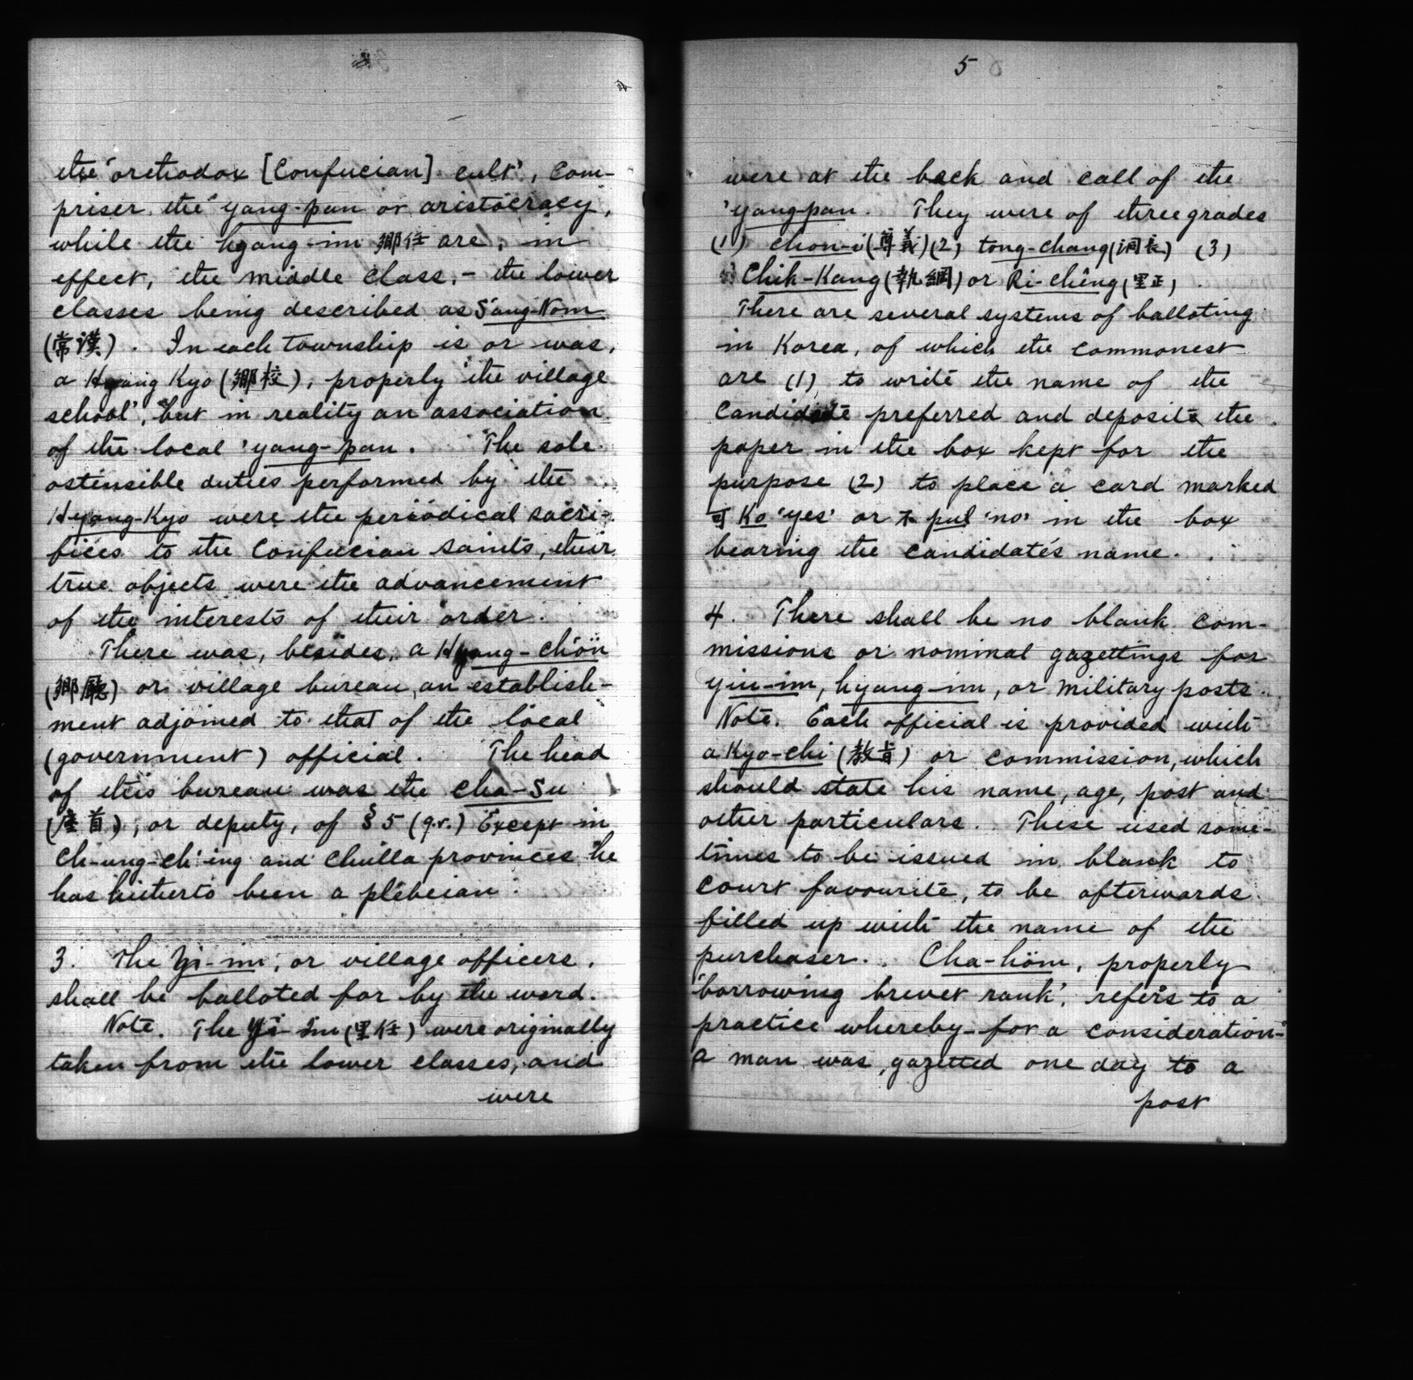 the 'orthodox [Confucian] cult', com-
priser the 'yang-pan or aristocracy,
while the hyang-im 鄉任 are, in
effect, the middle class, – the lower
classes being described as Sang-Nom
(常漢). In each township is or was,
a Hyang Kyo (鄉校), properly 'the village
school', but in reality an association
of the local 'yang-pan. The sole
ostensible duties performed by the
Hyang-Kyo were the periodical sacri-
fices to the Confucian saints, their
true objects were the advancement
of the interests of their order.
There was, besides, a Hyang-chön
(鄉廳) or village bureau, an establish-
ment adjoined to that of the local
(government) official. The head
of this bureau was the Cha-Su
(座首), or deputy, of § 5 (q.v.) Except in
Ch-ung-ch'ing and Chulla provinces he
has hitherto been a plebeian.
3. The Yi-im, or village officers,
shall be balloted for by the ward.
Note. The Yi-im (里任) were originally
taken from the lower classes, and
were
5
were at the beck and call of the
'yangpan. They were of three grades
(1) chon-i (尊義) (2) tong-chang (洞長) (3)
Chik-Kang (執綱) or Ri-chêng (里正).
There are several systems of balloting
in Korea, of which the commonest
are (1) to write the name of the
candidate preferred and deposit the
paper in the box kept for the
purpose (2) to place a card marked
可 Ko 'yes' or 不 pul 'no' in the box
bearing the candidate's name.
4. There shall be no blank com-
missions or nominal gazettings for
yiu-im, hyang-im, or military posts.
Note. Each official is provided with
a Kyo-chi (敎旨) or commission, which
should state his name, age, post and
other particulars. These used some-
times to be issued in blank to
court favourite, to be afterwards
filled up with the name of the
purchaser. Cha-höm, properly
'borrowing brevet rank', refers to a
practice whereby – for a consideration –
a man was gazetted one day to a
post